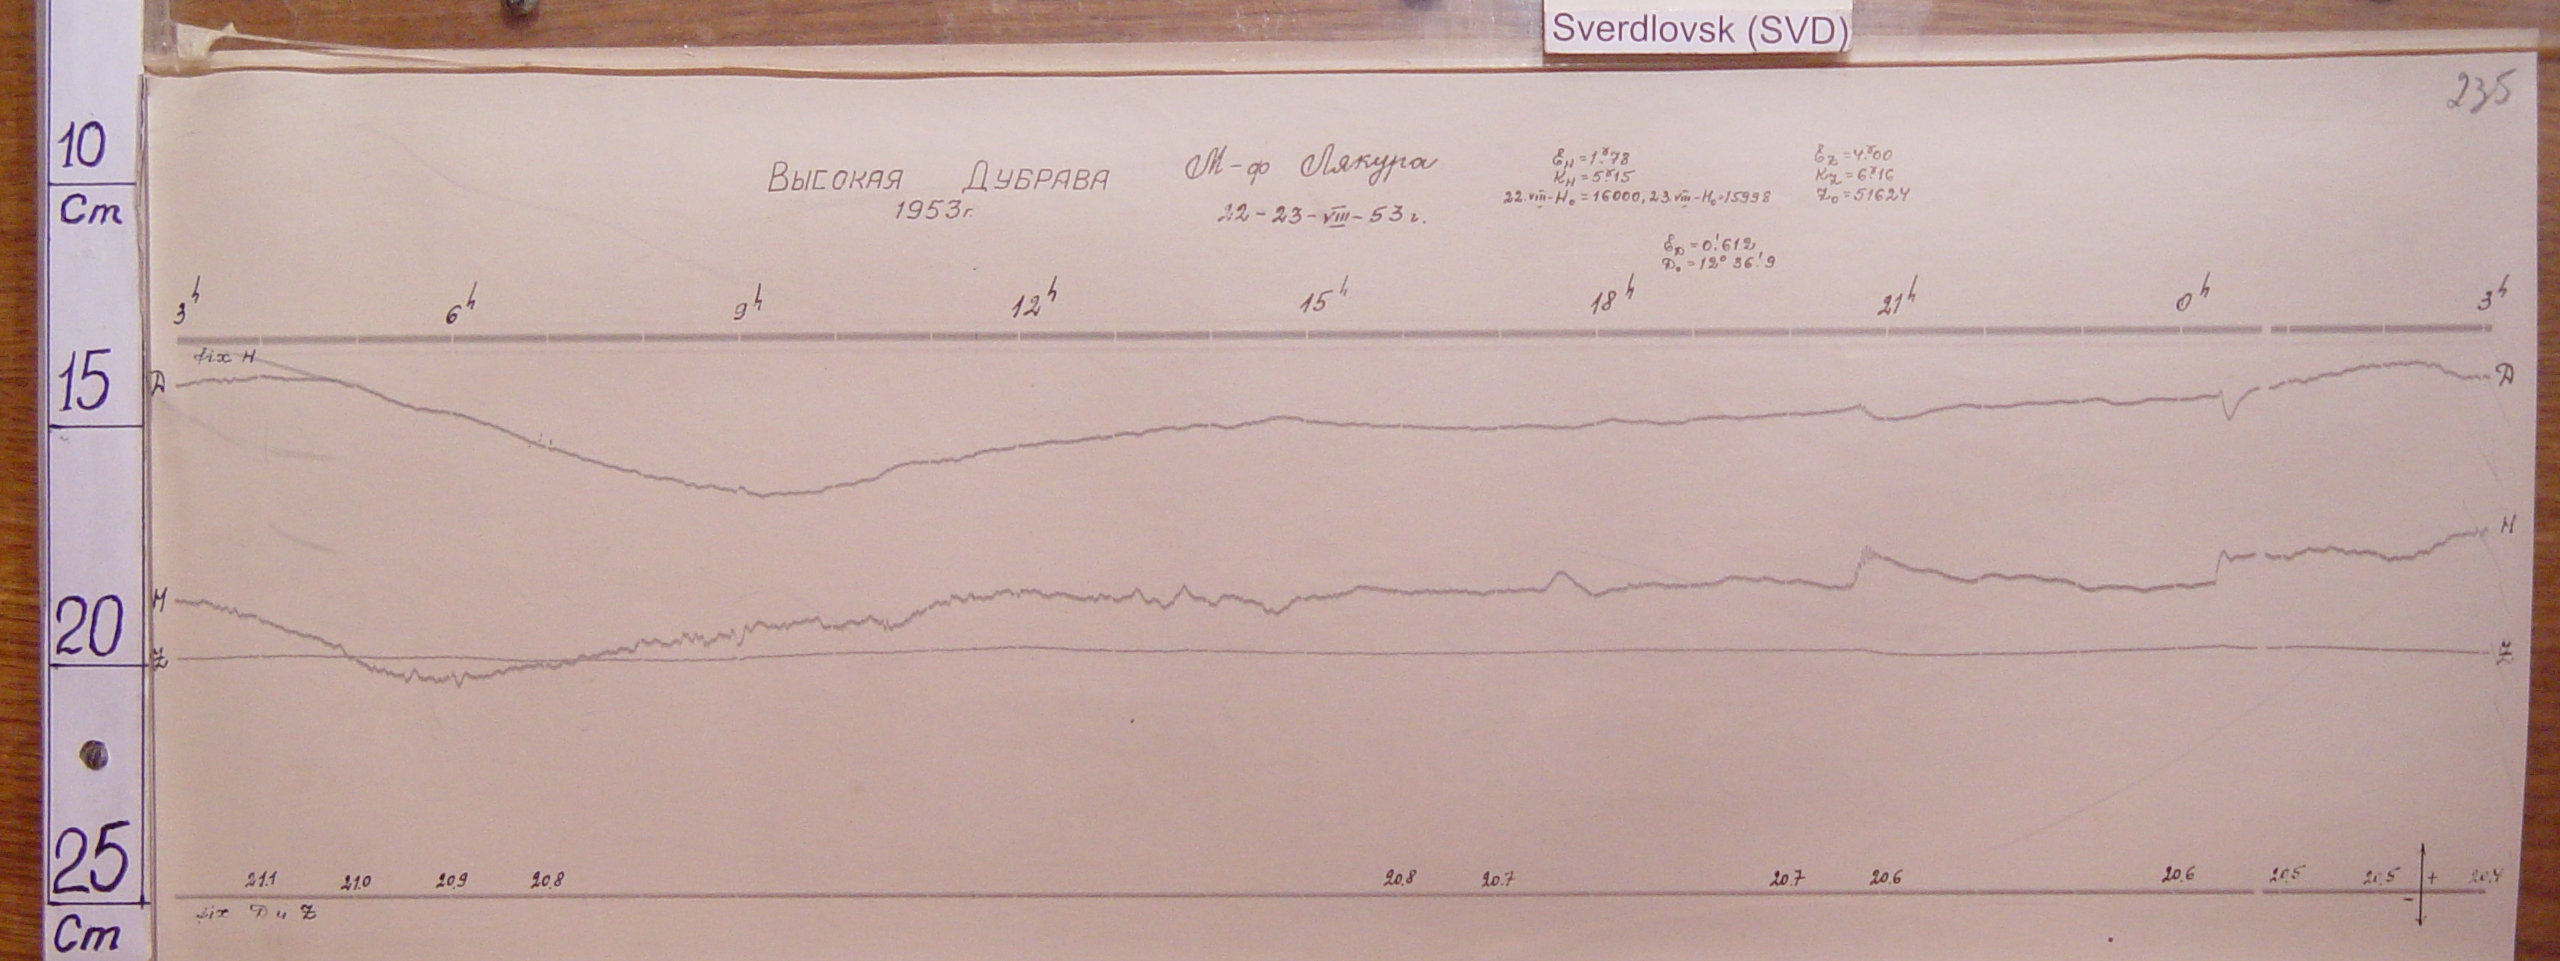 Sverdlovsk (SVD)
235
10
Cm
15
20
25
Cm
ВЫСОКАЯ ДУБРАВА
1953г.
М-ф Лякура
22-23-VIII-53г.
Ɛн=1.ˠ78
Kн=5.ˠ15
22.VIII-H₀=16000, 23.VIII-H₀=15998
Ɛz=4.ˠ00
Kz=6.ˠ16
Z₀=51624
ƐD=0.ʹ612
D₀=12° 36.ʹ9
3ʰ 6ʰ 9ʰ 12ʰ 15ʰ 18ʰ 21ʰ 0ʰ 3ʰ
fix H
D D
H H
Z Z
21.1 21.0 20.9 20.8 20.8 20.7 20.7 20.6 20.6 20.5 20.5 + 20.4
-
fix D и Z